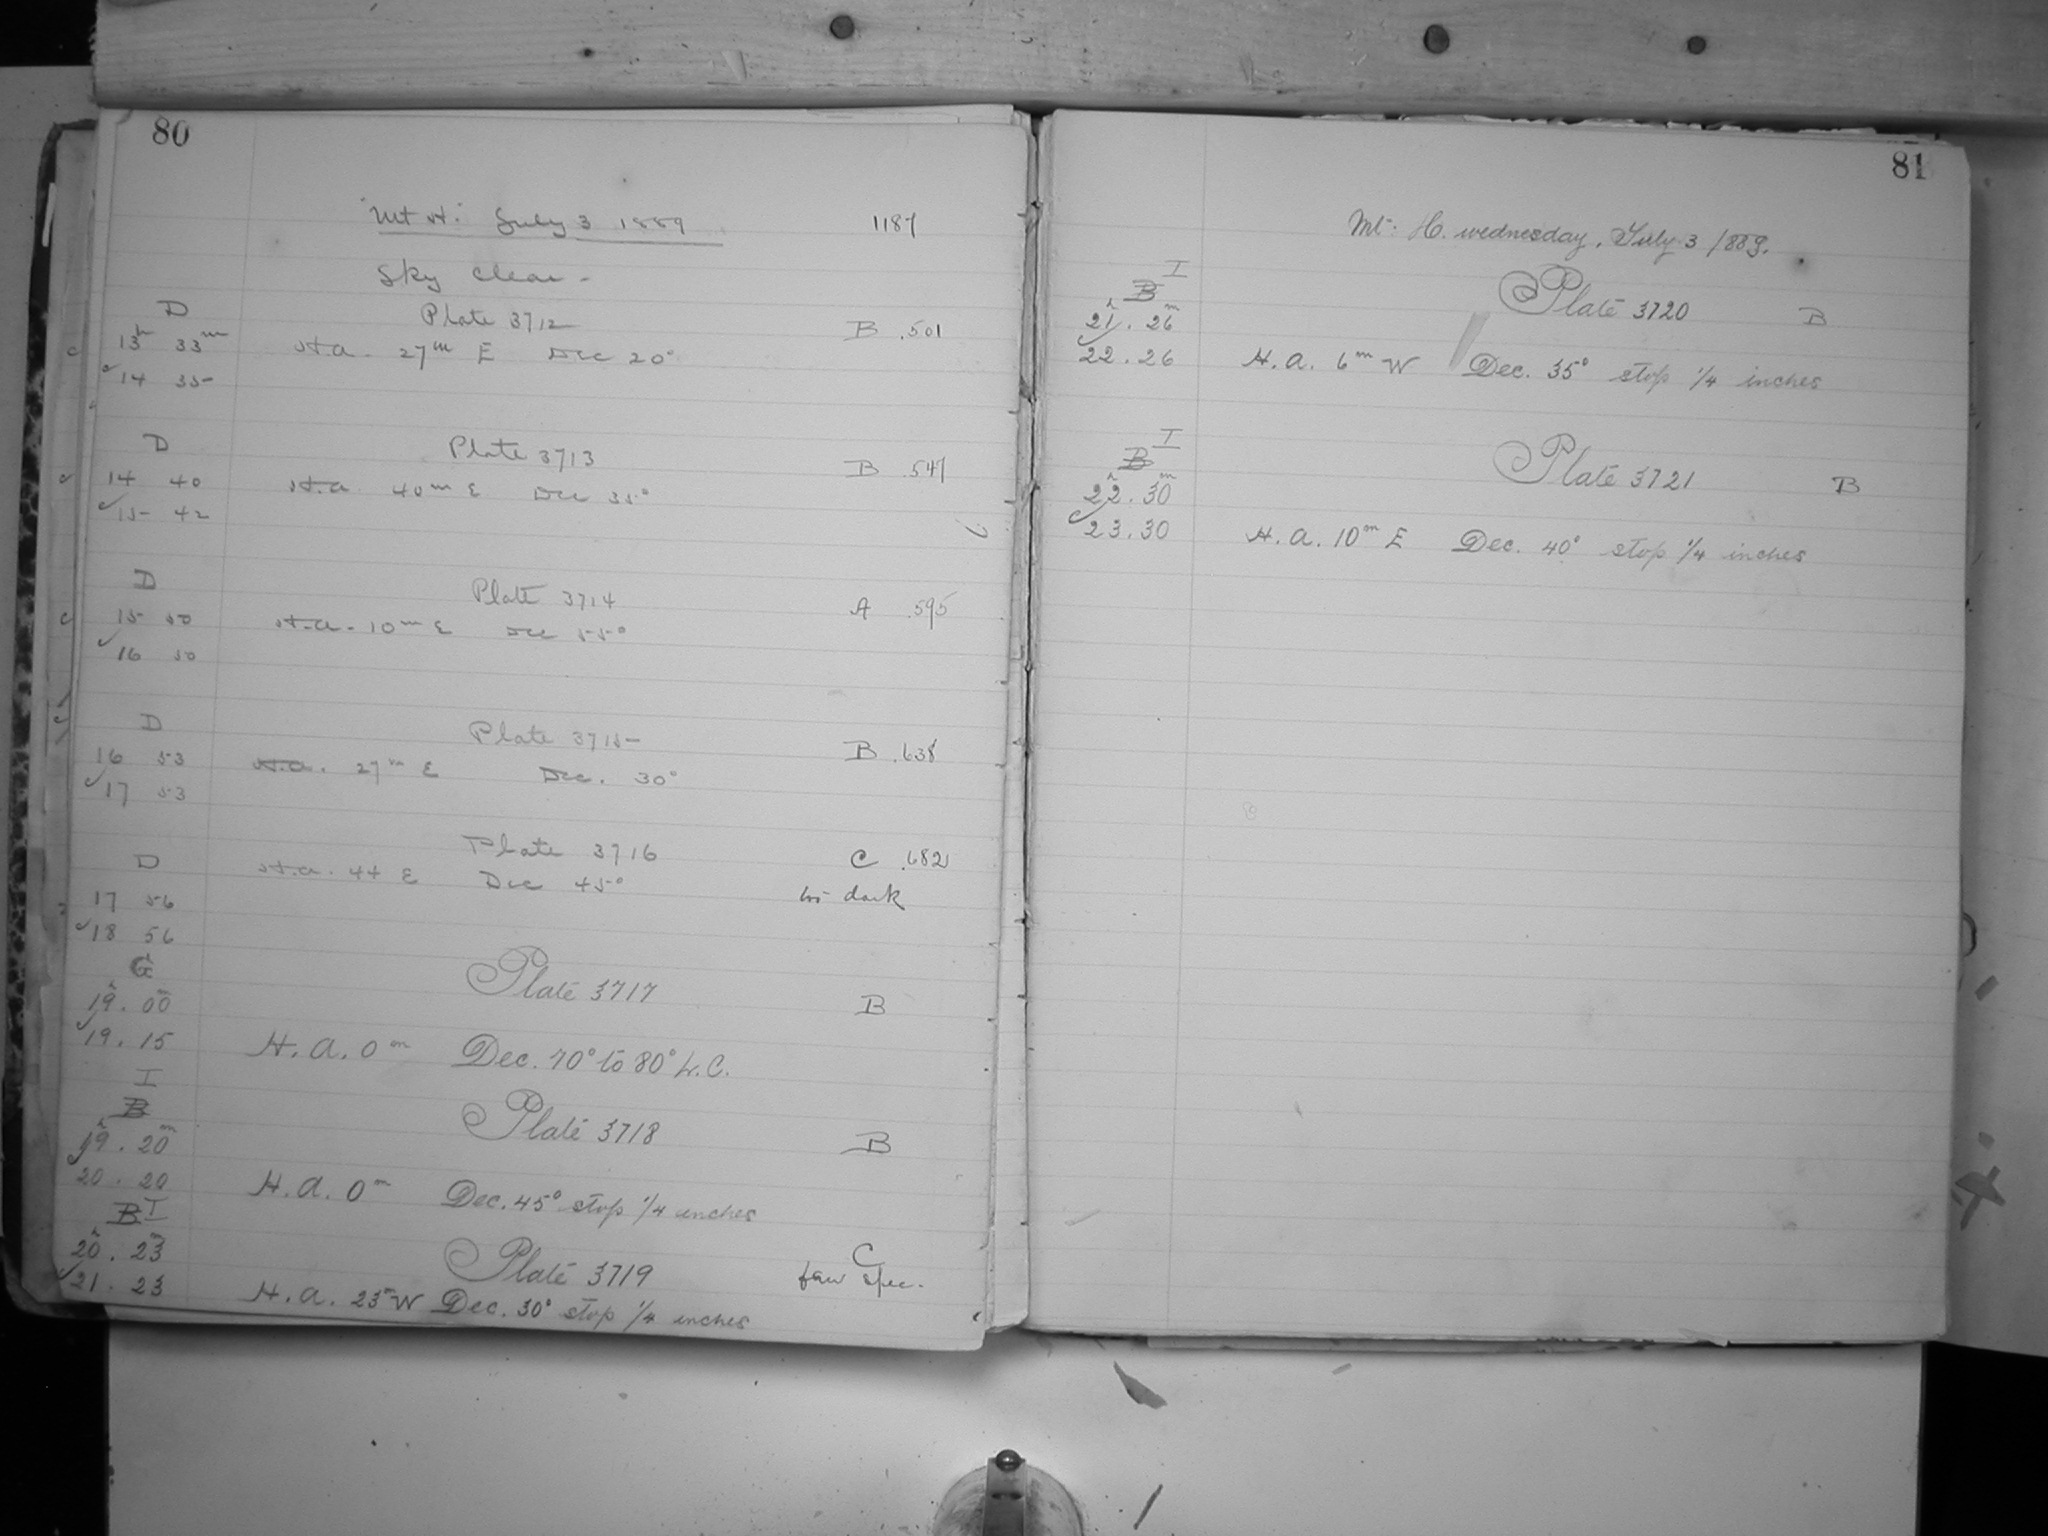 80
"Mt H." July 3 1889 1187
Sky clear -
D Plate 3712 B .501
13h 33m H.a. 27m E Dec 20°
14 35
D Plate 3713 B .547
14 40 H.a 40m E Dec 35°
15 42
D Plate 3714 A .595
15 50 H.a. 10m E Dec 55°
16 50
D Plate 3715 B .638
16 53 H.a. 27m E Dec. 30°
17 53
Plate 3716 C .682
D H.a. 44 E Dec 45° too dark
17 56
18 56
G Plate 3717 B
19h.00m
19.15 H.a. 0m Dec. 70° to 80° L.C.
I
B Plate 3718 B
19h.20m
20.20 H.a. 0m Dec. 45° stop 1/4 inches
B I
20h.23m Plate 3719 C few spec.
21.23 H.a. 23m W Dec. 30° stop 1/4 inches
81
Mt. H. wednesday, July 3 1889.
I
B Plate 3720 B
21h.26m
22.26 H.a. 6m W Dec. 35° stop 1/4 inches
I
B Plate 3721 B
22h.30m
23.30 H.a. 10m E Dec. 40° stop 1/4 inches